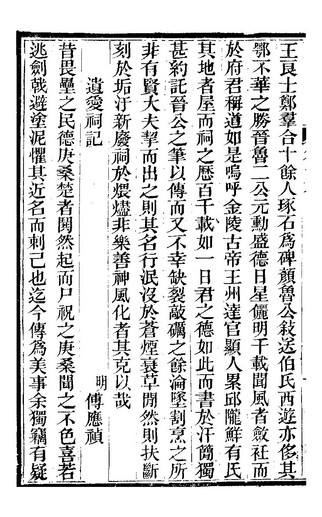 王良士鄭羣合十餘人琢石爲碑顏魯公敘送伯氏西遊亦侈其
鄂不華之勝晉魯二公元勳盛德日星儷明千載聞風者斂衽而
於府君稱道如是嗚呼金陵古帝王州達官顯人累邱隴鮮有氏
其地者屋而祠之歷百千載如一日君之德如此而書於汗簡獨
甚約託晉公之筆以傳而又不幸缺裂敲礪之餘淪墜割烹之所
非有賢大夫挈而出之則其名行泯沒於蒼煙衰草閒然則扶斷
刻於垢汙新廢祠於煨燼非樂善神風化者其克以哉
遺愛祠記
明傅應禎
昔畏壘之民德庚桑楚者閧然起而尸祝之庚桑聞之不色喜若
逃劍戟避塗泥懼其近名而刺己也迄今傳爲美事余獨竊有疑